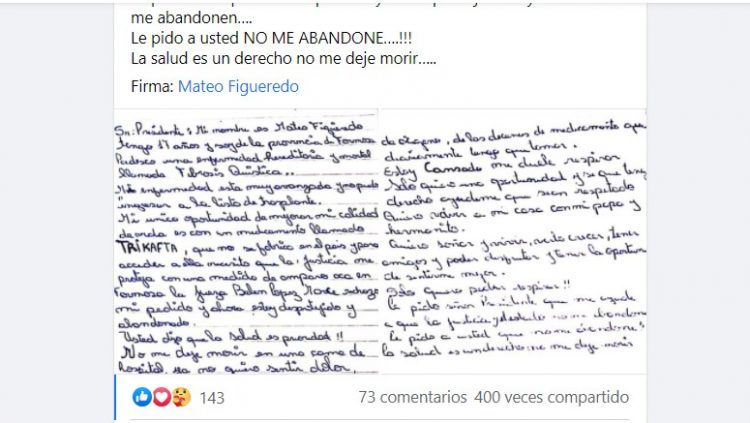 me abandonen....
Le pido a usted NO ME ABANDONE....!!!
La salud es un derecho no me deje morir.....
Firma: Mateo Figueredo
Sr: Presidente: Mi nombre es Mateo Figueredo
tengo 17 años y soy de la provincia de Formosa
Padesco una enfermedad hereditaria y mortal
llamada Fibrosis Quistica..
Mi enfermedad esta muy avanzada ya pude
ingresar a la lista de trasplante.
Mi unica oportunidad de mejorar mi calidad
de vida es con un medicamento llamado
TRIKAFTA, que no se fabrica en el pais y para
acceder a ella necesito que la justicia me
proteja con una medida de amparo aca en
Formosa la jueza Belen Lopez Mace rechazo
mi pedido y ahora estoy desprotejido y
abandonado.
Usted dijo que la salud es prioridad!!
No me deje morir en una cama de
hospital. ya no quiero sentir dolor,
de oxigeno, de las decenas de medicamento que
diariamente tengo que tomar.
Estoy Cansado me duele respirar
Solo quiero una oportunidad y se que tengo
derecho ayudeme que sean respetado
Quiero volver a mi casa con mi papa y
hermanito.
Quiero soñar y vivir, verlo crecer, tener
amigos y poder disfrutar y tener la oportuni
de sentirme mejor.
Solo quiero poder respirar!!
Le pido señor Presidente que me ayude
a que la justicia y el estado no me abandone
Le pido a usted que no me abandone
la salud es un derecho no me deje morir
143
73 comentarios 400 veces compartido